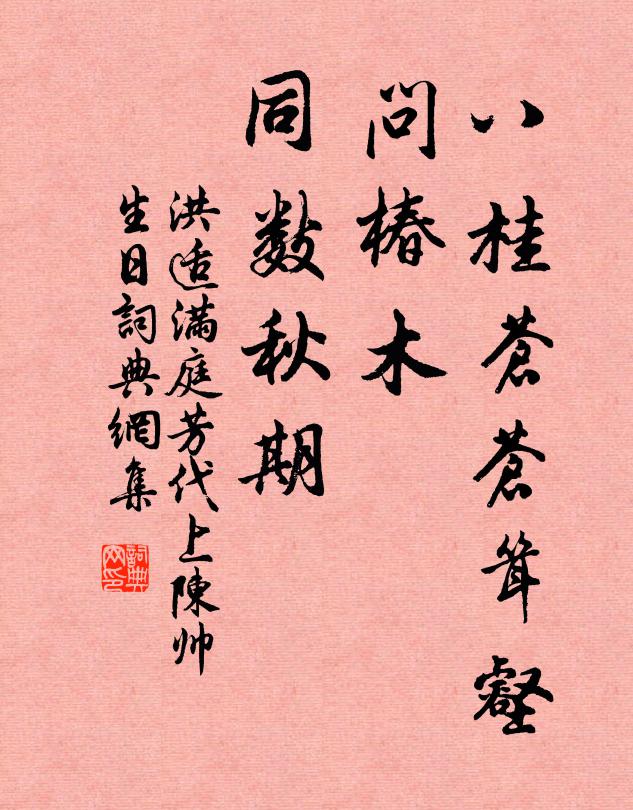 八桂蒼蒼耸壑
問椿木
同數秋期
洪适滿庭芳代上陳帅
生日詞典網集
詞典
网印